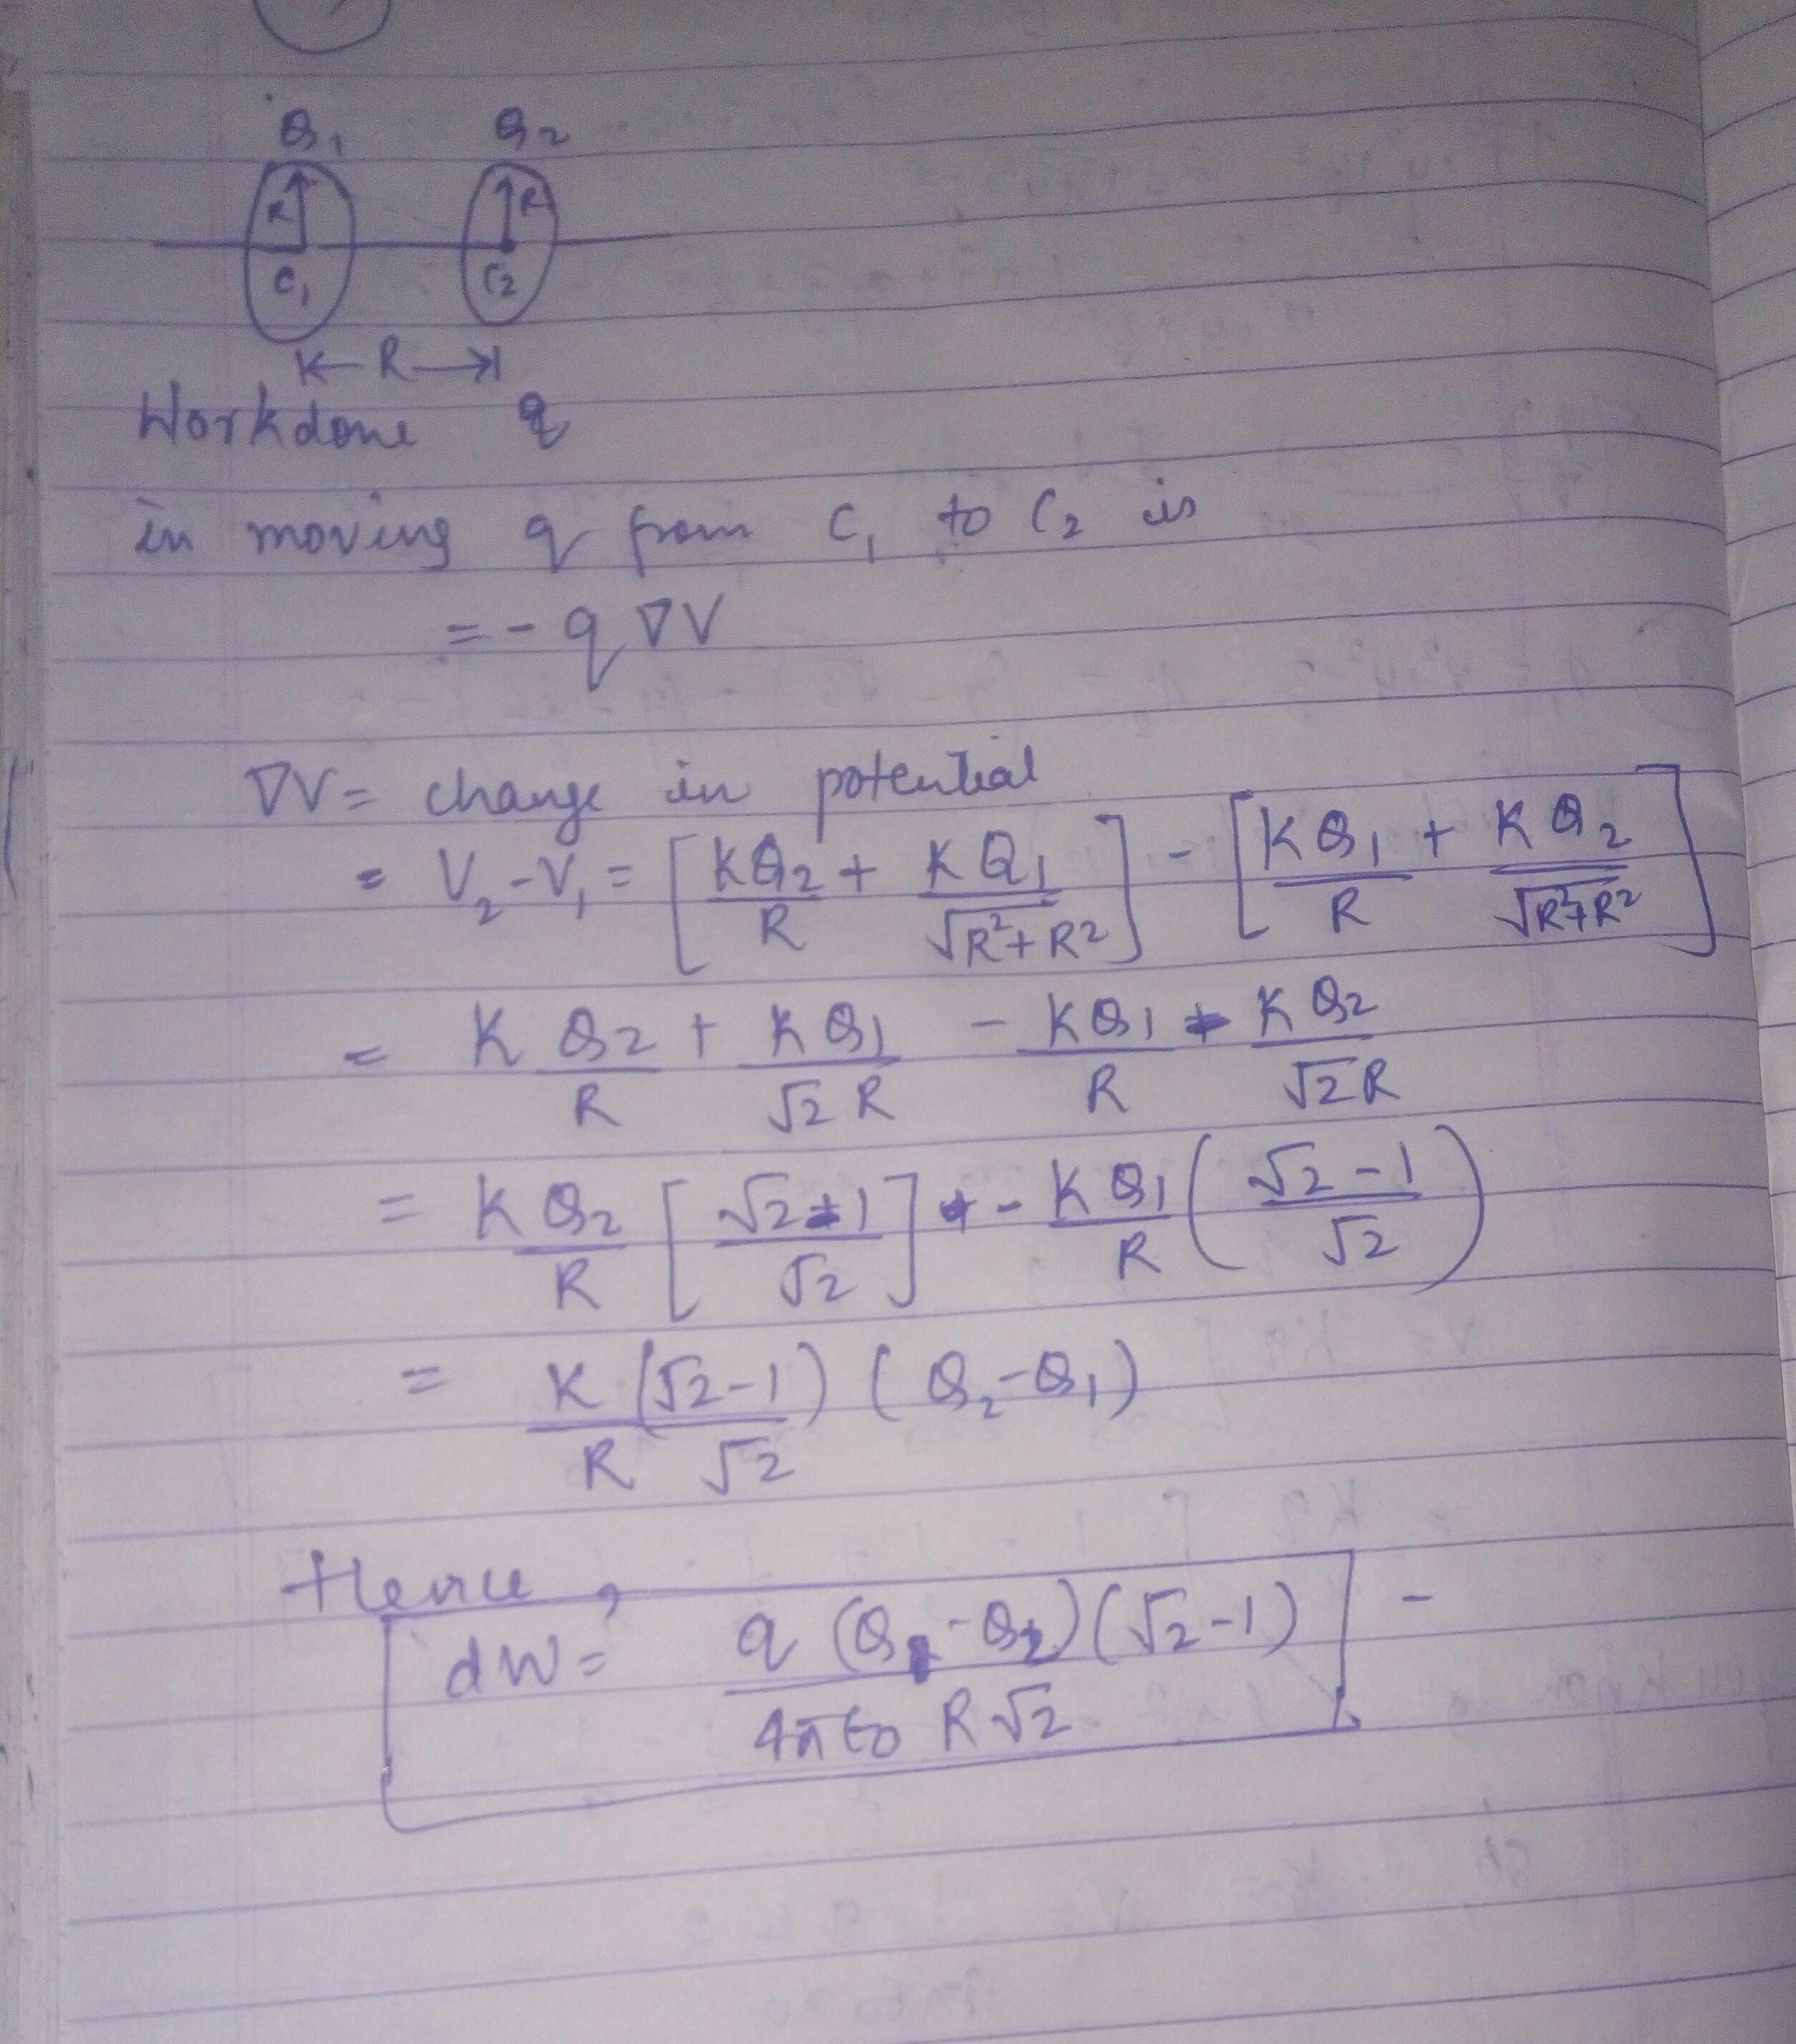 Q₁ Q₂
R R
C₁ C₂
R
Workdone q
in moving q from C₁ to C₂ is
= - q ∇V
∇V = change in potential
= V₂ - V₁ = [KQ₂/R + KQ₁/√(R²+R²)] - [KQ₁/R + KQ₂/√(R²+R²)]
= KQ₂/R + KQ₁/√2 R - KQ₁/R - KQ₂/√2 R
= KQ₂/R [(√2-1)/√2] - KQ₁/R ((√2-1)/√2)
= K(√2-1)/(R √2) (Q₂-Q₁)
Hence,
dW = q (Q₁-Q₂)(√2-1)/(4πε₀ R√2)